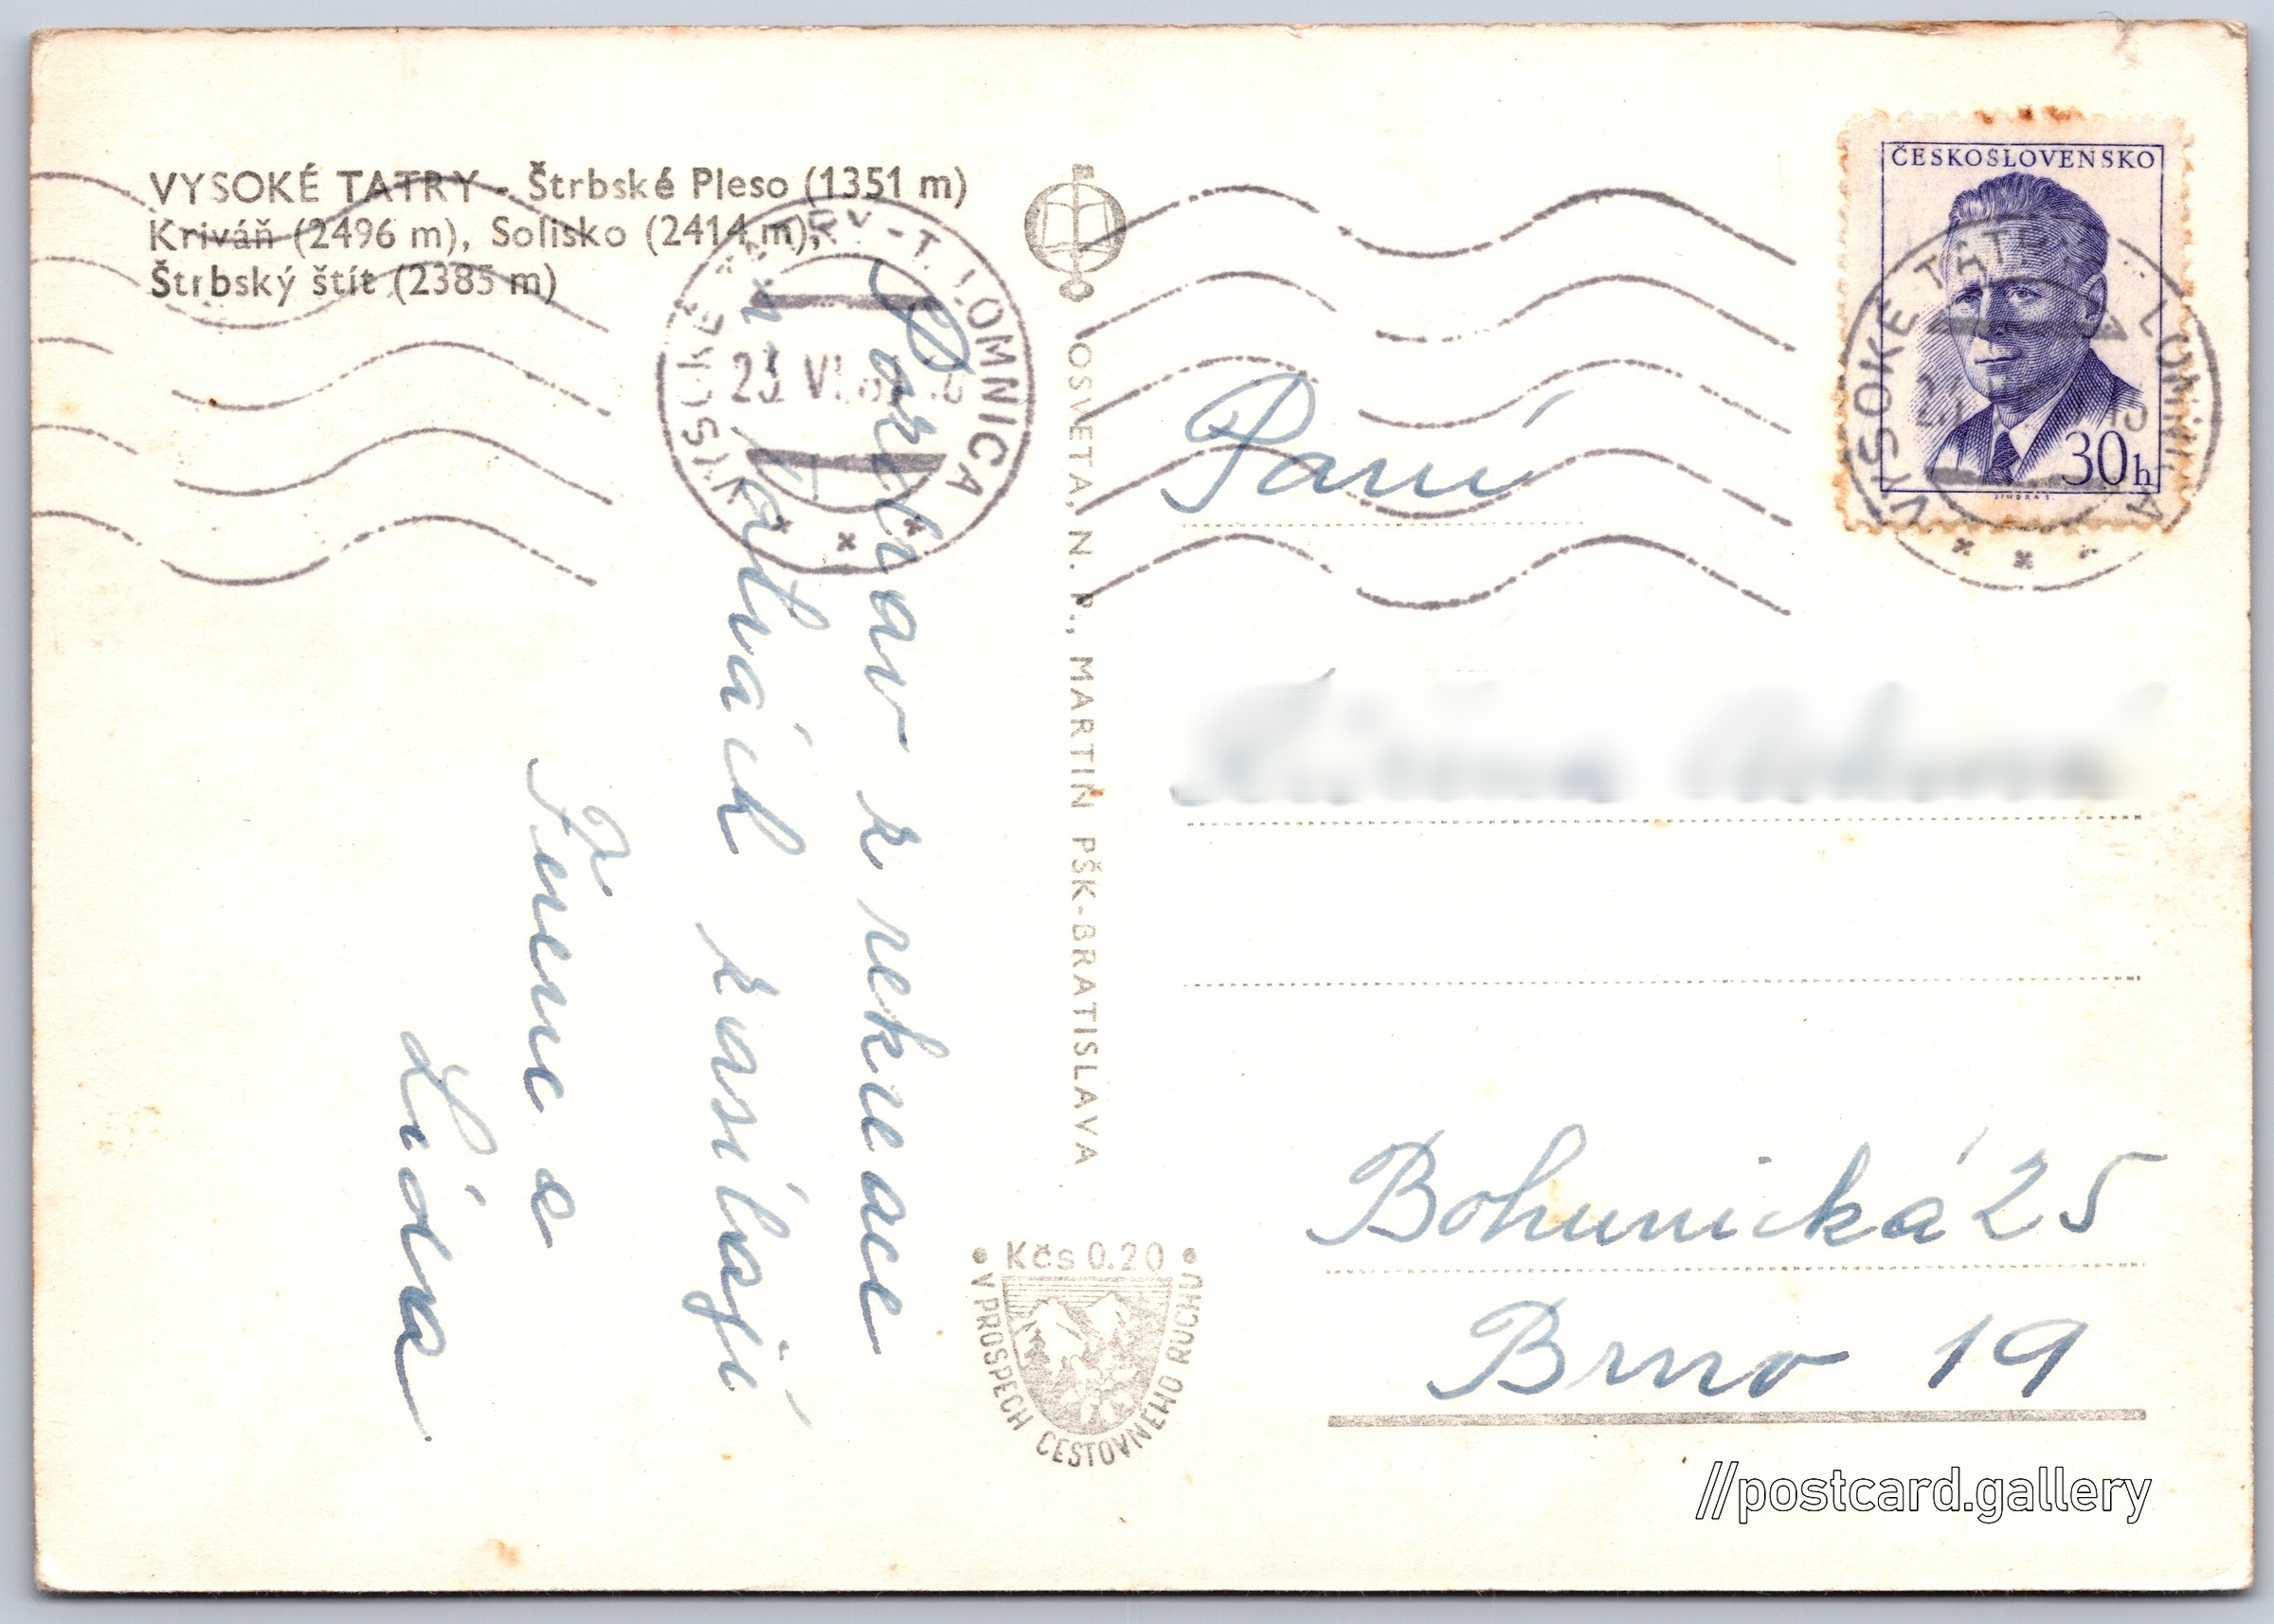 VYSOKÉ TATRY - Štrbské Pleso (1351 m)
Kriváň (2496 m), Solisko (2414 m),
Štrbský štít (2385 m)
VYSOKÉ TATRY - T. LOMNICA
Pozdrav z rekreace
v Tatrách zasílají
a
Lída
OSVETA, N. P., MARTIN PŠK-BRATISLAVA
Kčs 0.20
V PROSPECH CESTOVNÉHO RUCHU
ČESKOSLOVENSKO
30h
VYSOKÉ TATRY - T. LOMNICA
Paní
Bohunická 25
Brno 19
//postcard.gallery